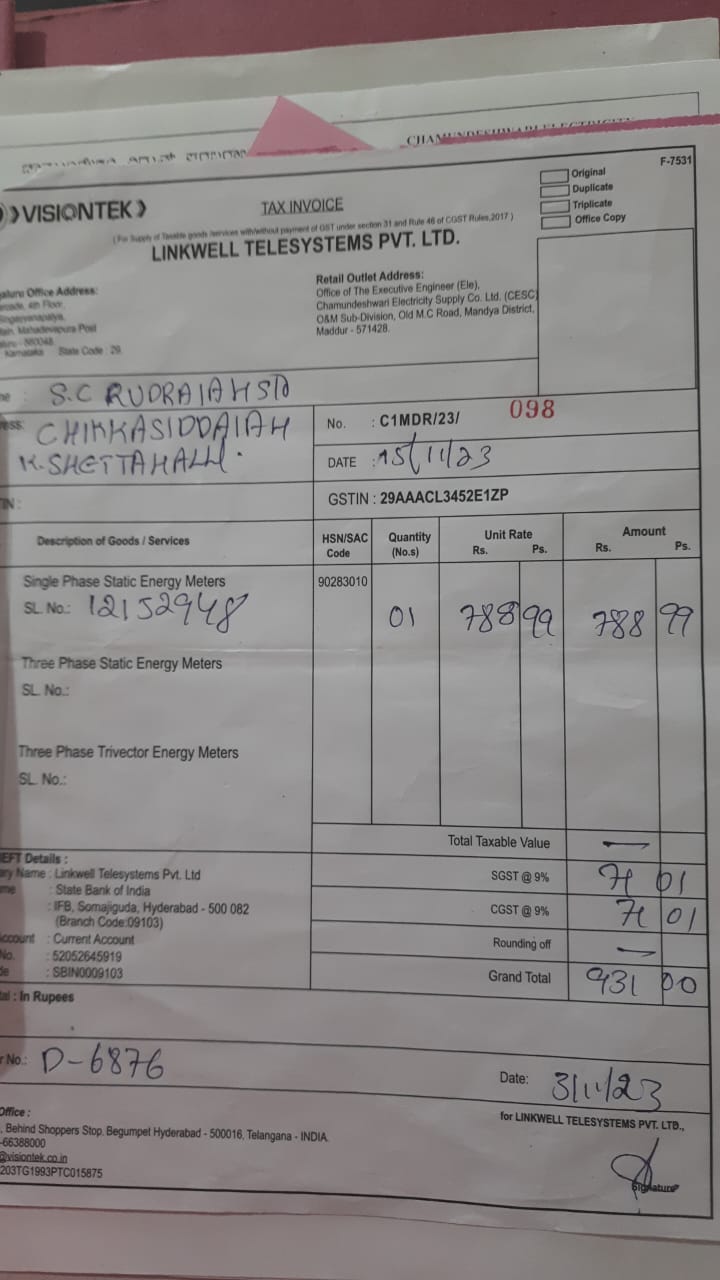 CHAMUNDESHWARI ELECTRICITY
F-7531
VISIONTEK
TAX INVOICE
Original
Duplicate
Triplicate
Office Copy
( For Supply of Taxable goods /services with/without payment of GST under section 31 and Rule 46 of CGST Rules,2017 )
LINKWELL TELESYSTEMS PVT. LTD.
Office Address:
4th Floor,
Mahadevapura Post
Karnataka State Code : 29
Retail Outlet Address:
Office of The Executive Engineer (Ele),
Chamundeshwari Electricity Supply Co. Ltd. (CESC)
O&M Sub-Division, Old M.C Road, Mandya District,
Maddur - 571428.
S.C RUDRAIAH S/O
CHIKKASIDDAIAH
K.SHETTAHALLI.
No. : C1MDR/23/ 098
DATE : 15/11/23
GSTIN : 29AAACL3452E1ZP
Description of Goods / Services
HSN/SAC Code
Quantity (No.s)
Unit Rate Rs. Ps.
Amount Rs. Ps.
Single Phase Static Energy Meters 90283010
SL. No.: 12152948 01 788 99 788 99
Three Phase Static Energy Meters
SL. No.:
Three Phase Trivector Energy Meters
SL. No.:
Total Taxable Value —
EFT Details :
ary Name : Linkwell Telesystems Pvt. Ltd
SGST @ 9% 71 01
me : State Bank of India
: IFB, Somajiguda, Hyderabad - 500 082
(Branch Code:09103)
CGST @ 9% 71 01
ccount : Current Account
Rounding off —
No. : 52052645919
de : SBIN0009103
Grand Total 931 00
tal : In Rupees
r No.: D-6876
Date: 3/11/23
for LINKWELL TELESYSTEMS PVT. LTD.,
Office :
, Behind Shoppers Stop. Begumpet Hyderabad - 500016, Telangana - INDIA.
-66388000
@visiontek.co.in
203TG1993PTC015875
Signature